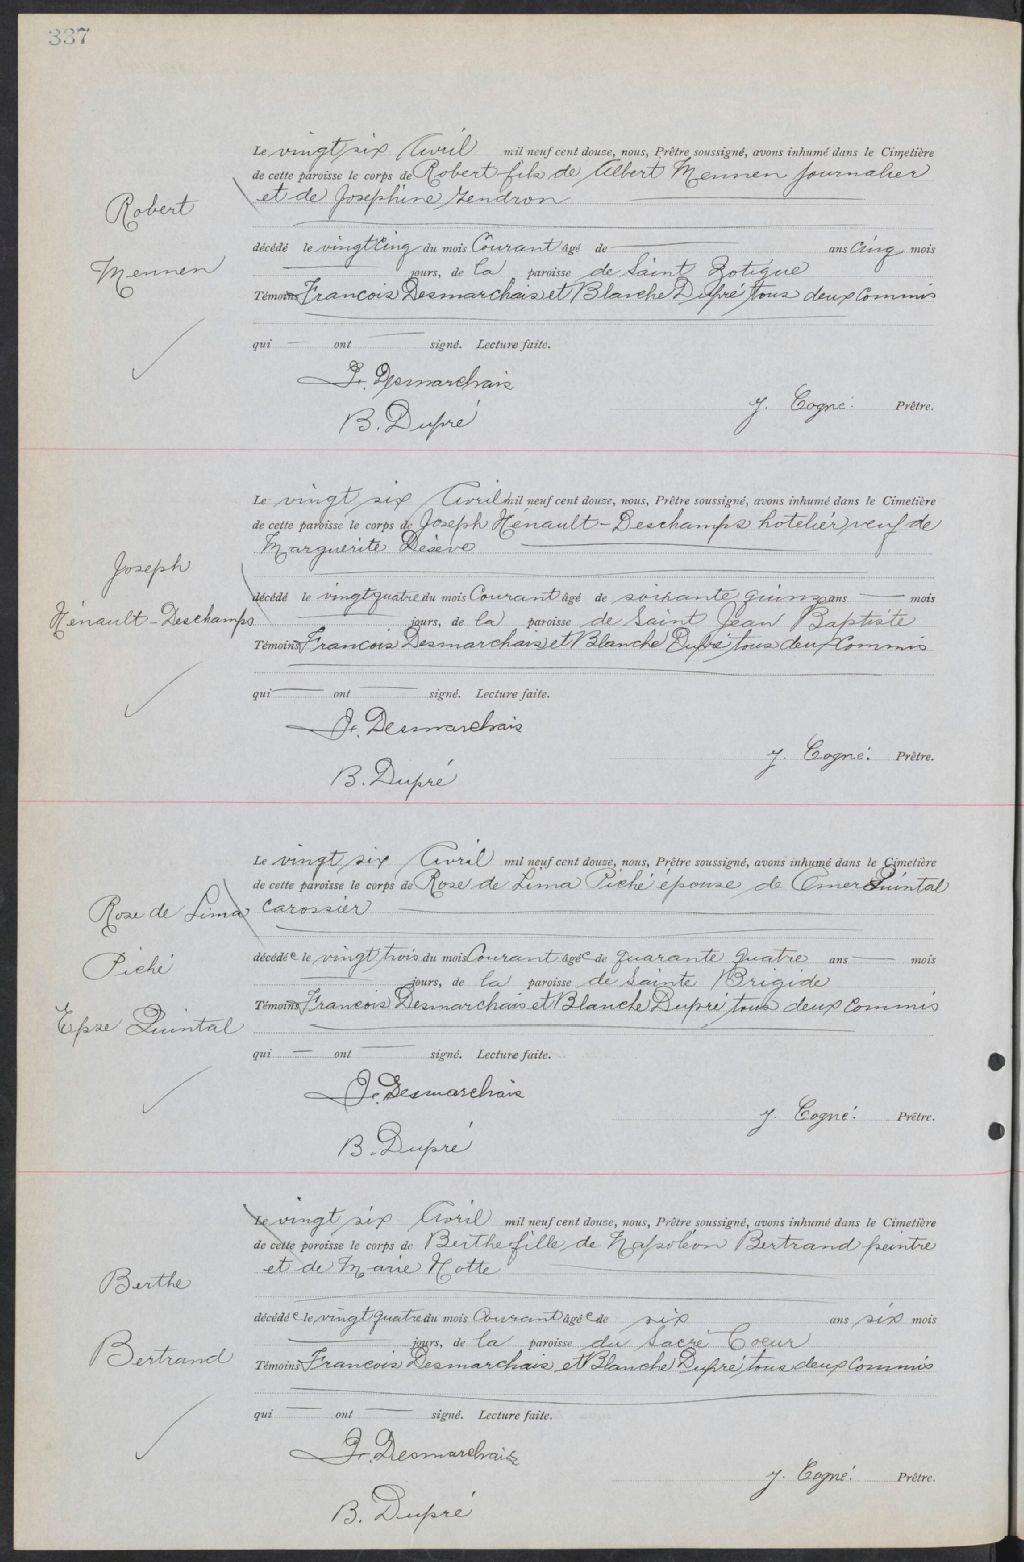 337
Robert
Mennen
Le vingt six Avril mil neuf cent douze, nous, Prêtre soussigné, avons inhumé dans le Cimetière
de cette paroisse le corps de Robert fils de Albert Mennen journalier
et de Josephine Gendron
décédé le vingt cinq du mois Courant âgé de ans cinq mois
jours, de la paroisse de Saint Zotique
Témoins Francois Desmarchais et Blanche Dupré tous deux Commis
qui ont signé. Lecture faite.
F. Desmarchais
J. Cogné. Prêtre.
B. Dupré
Joseph
Hénault-Deschamps
Le vingt six Avril mil neuf cent douze, nous, Prêtre soussigné, avons inhumé dans le Cimetière
de cette paroisse le corps de Joseph Hénault-Deschamps hotelier veuf de
Marguerite Désève
décédé le vingt quatre du mois Courant âgé de soixante quinze ans mois
jours, de la paroisse de Saint Jean Baptiste
Témoins Francois Desmarchais et Blanche Dupré tous deux Commis
qui ont signé. Lecture faite.
F. Desmarchais
J. Cogné. Prêtre.
B. Dupré
Rose de Lima
Piché
Epse Quintal
Le vingt six Avril mil neuf cent douze, nous, Prêtre soussigné, avons inhumé dans le Cimetière
de cette paroisse le corps de Rose de Lima Piché épouse de Omer Quintal
carossier
décédée le vingt trois du mois Courant âgée de quarante quatre ans mois
jours, de la paroisse de Sainte Brigide
Témoins Francois Desmarchais et Blanche Dupré tous deux Commis
qui ont signé. Lecture faite.
F. Desmarchais
J. Cogné. Prêtre.
B. Dupré
Berthe
Bertrand
Le vingt six Avril mil neuf cent douze, nous, Prêtre soussigné, avons inhumé dans le Cimetière
de cette paroisse le corps de Berthe fille de Napoléon Bertrand peintre
et de Marie Hotte
décédée le vingt quatre du mois Courant âgée de six ans six mois
jours, de la paroisse du Sacré Coeur
Témoins Francois Desmarchais et Blanche Dupré tous deux Commis
qui ont signé. Lecture faite.
F. Desmarchais
J. Cogné. Prêtre.
B. Dupré